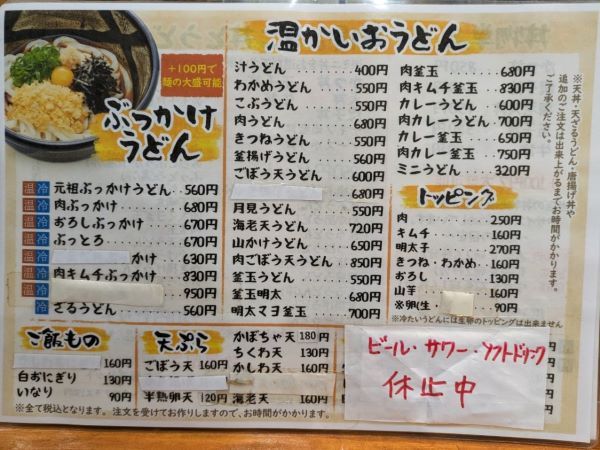 +100円で
麺の大盛可能
ぶっかけ
うどん
温 冷 元祖ぶっかけうどん・・560円
温 冷 肉ぶっかけ・・・680円
温 冷 おろしぶっかけ・・・670円
温 冷 ぶっとろ・・・670円
温 冷 かけ・・630円
温 冷 肉キムチぶっかけ・・830円
温 冷 950円
冷 ざるうどん・・・560円
温かいおうどん
汁うどん 400円
わかめうどん 550円
こぶうどん 550円
肉うどん 680円
きつねうどん 550円
釜揚げうどん 560円
ごぼう天うどん 680円
月見うどん 550円
海老天うどん 720円
山かけうどん 650円
肉ごぼう天うどん 850円
釜玉うどん 550円
釜玉明太 680円
明太マヨ釜玉 700円
肉釜玉 680円
肉キムチ釜玉 830円
カレーうどん 600円
肉カレーうどん 700円
カレー釜玉 650円
肉カレー釜玉 750円
ミニうどん 320円
※天丼・天ざるうどん・唐揚げ丼や
追加のご注文は出来上がるまでお時間がかかります。
ご了承ください。
トッピング
肉 250円
キムチ 160円
明太子 270円
きつね・わかめ 160円
おろし 130円
山芋 160円
※卵(生・ 90円
※冷たいうどんには生卵のトッピングは出来ません
ご飯もの
160円
白おにぎり 130円
いなり 90円
天ぷら
ごぼう天 160円
半熟卵天 120円
かぼちゃ天 180円
ちくわ天 130円
かしわ天 160円
海老天 160円
※全て税込となります。注文を受けてお作りしますので、お時間がかかります。
ビール・サワー・ソフトドリンク
休止中